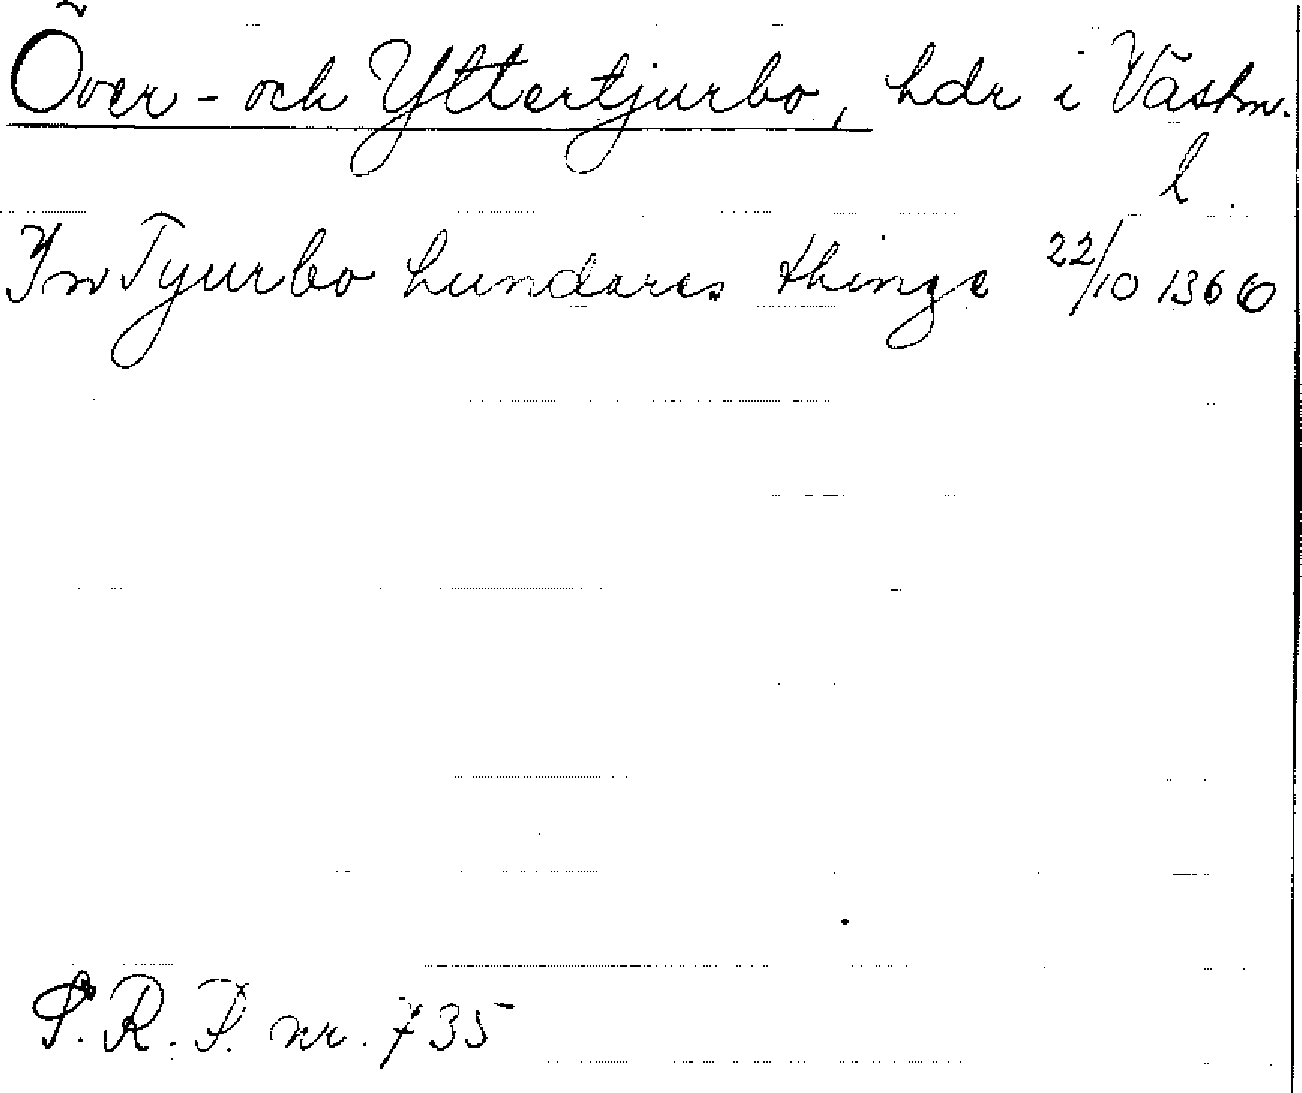 Över- och Yttertjurbo, hdr i Västm.
l.
In Tyurbo hundares thinge 22/10 1366
S.R.P. nr. 735